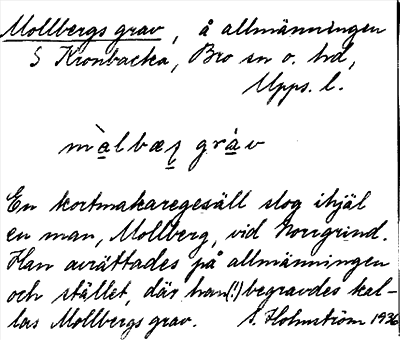 Mollbergs grav, å allmänningen
S Kronbacka, Bro sn o. hd,
Upps. l.
mòlbæꞃ gráv
En kortmakaregesäll slog ihjäl
en man, Mollberg, vid Norrgrind.
Han avrättades på allmänningen
och stället, där han(!) begravdes kal-
las Mollbergs grav. S. Holmström 1936